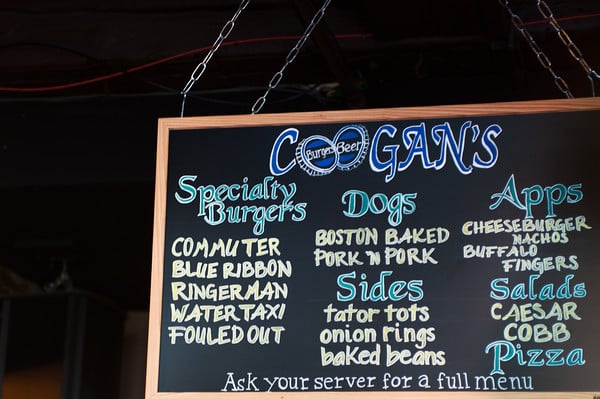 COOGAN'S
Burgers Beer
Specialty
Burgers
COMMUTER
BLUE RIBBON
RINGERMAN
WATER TAXI
FOULED OUT
Dogs
BOSTON BAKED
PORK 'N PORK
Sides
tator tots
onion rings
baked beans
Apps
CHEESEBURGER
NACHOS
BUFFALO
FINGERS
Salads
CAESAR
COBB
Pizza
Ask your server for a full menu